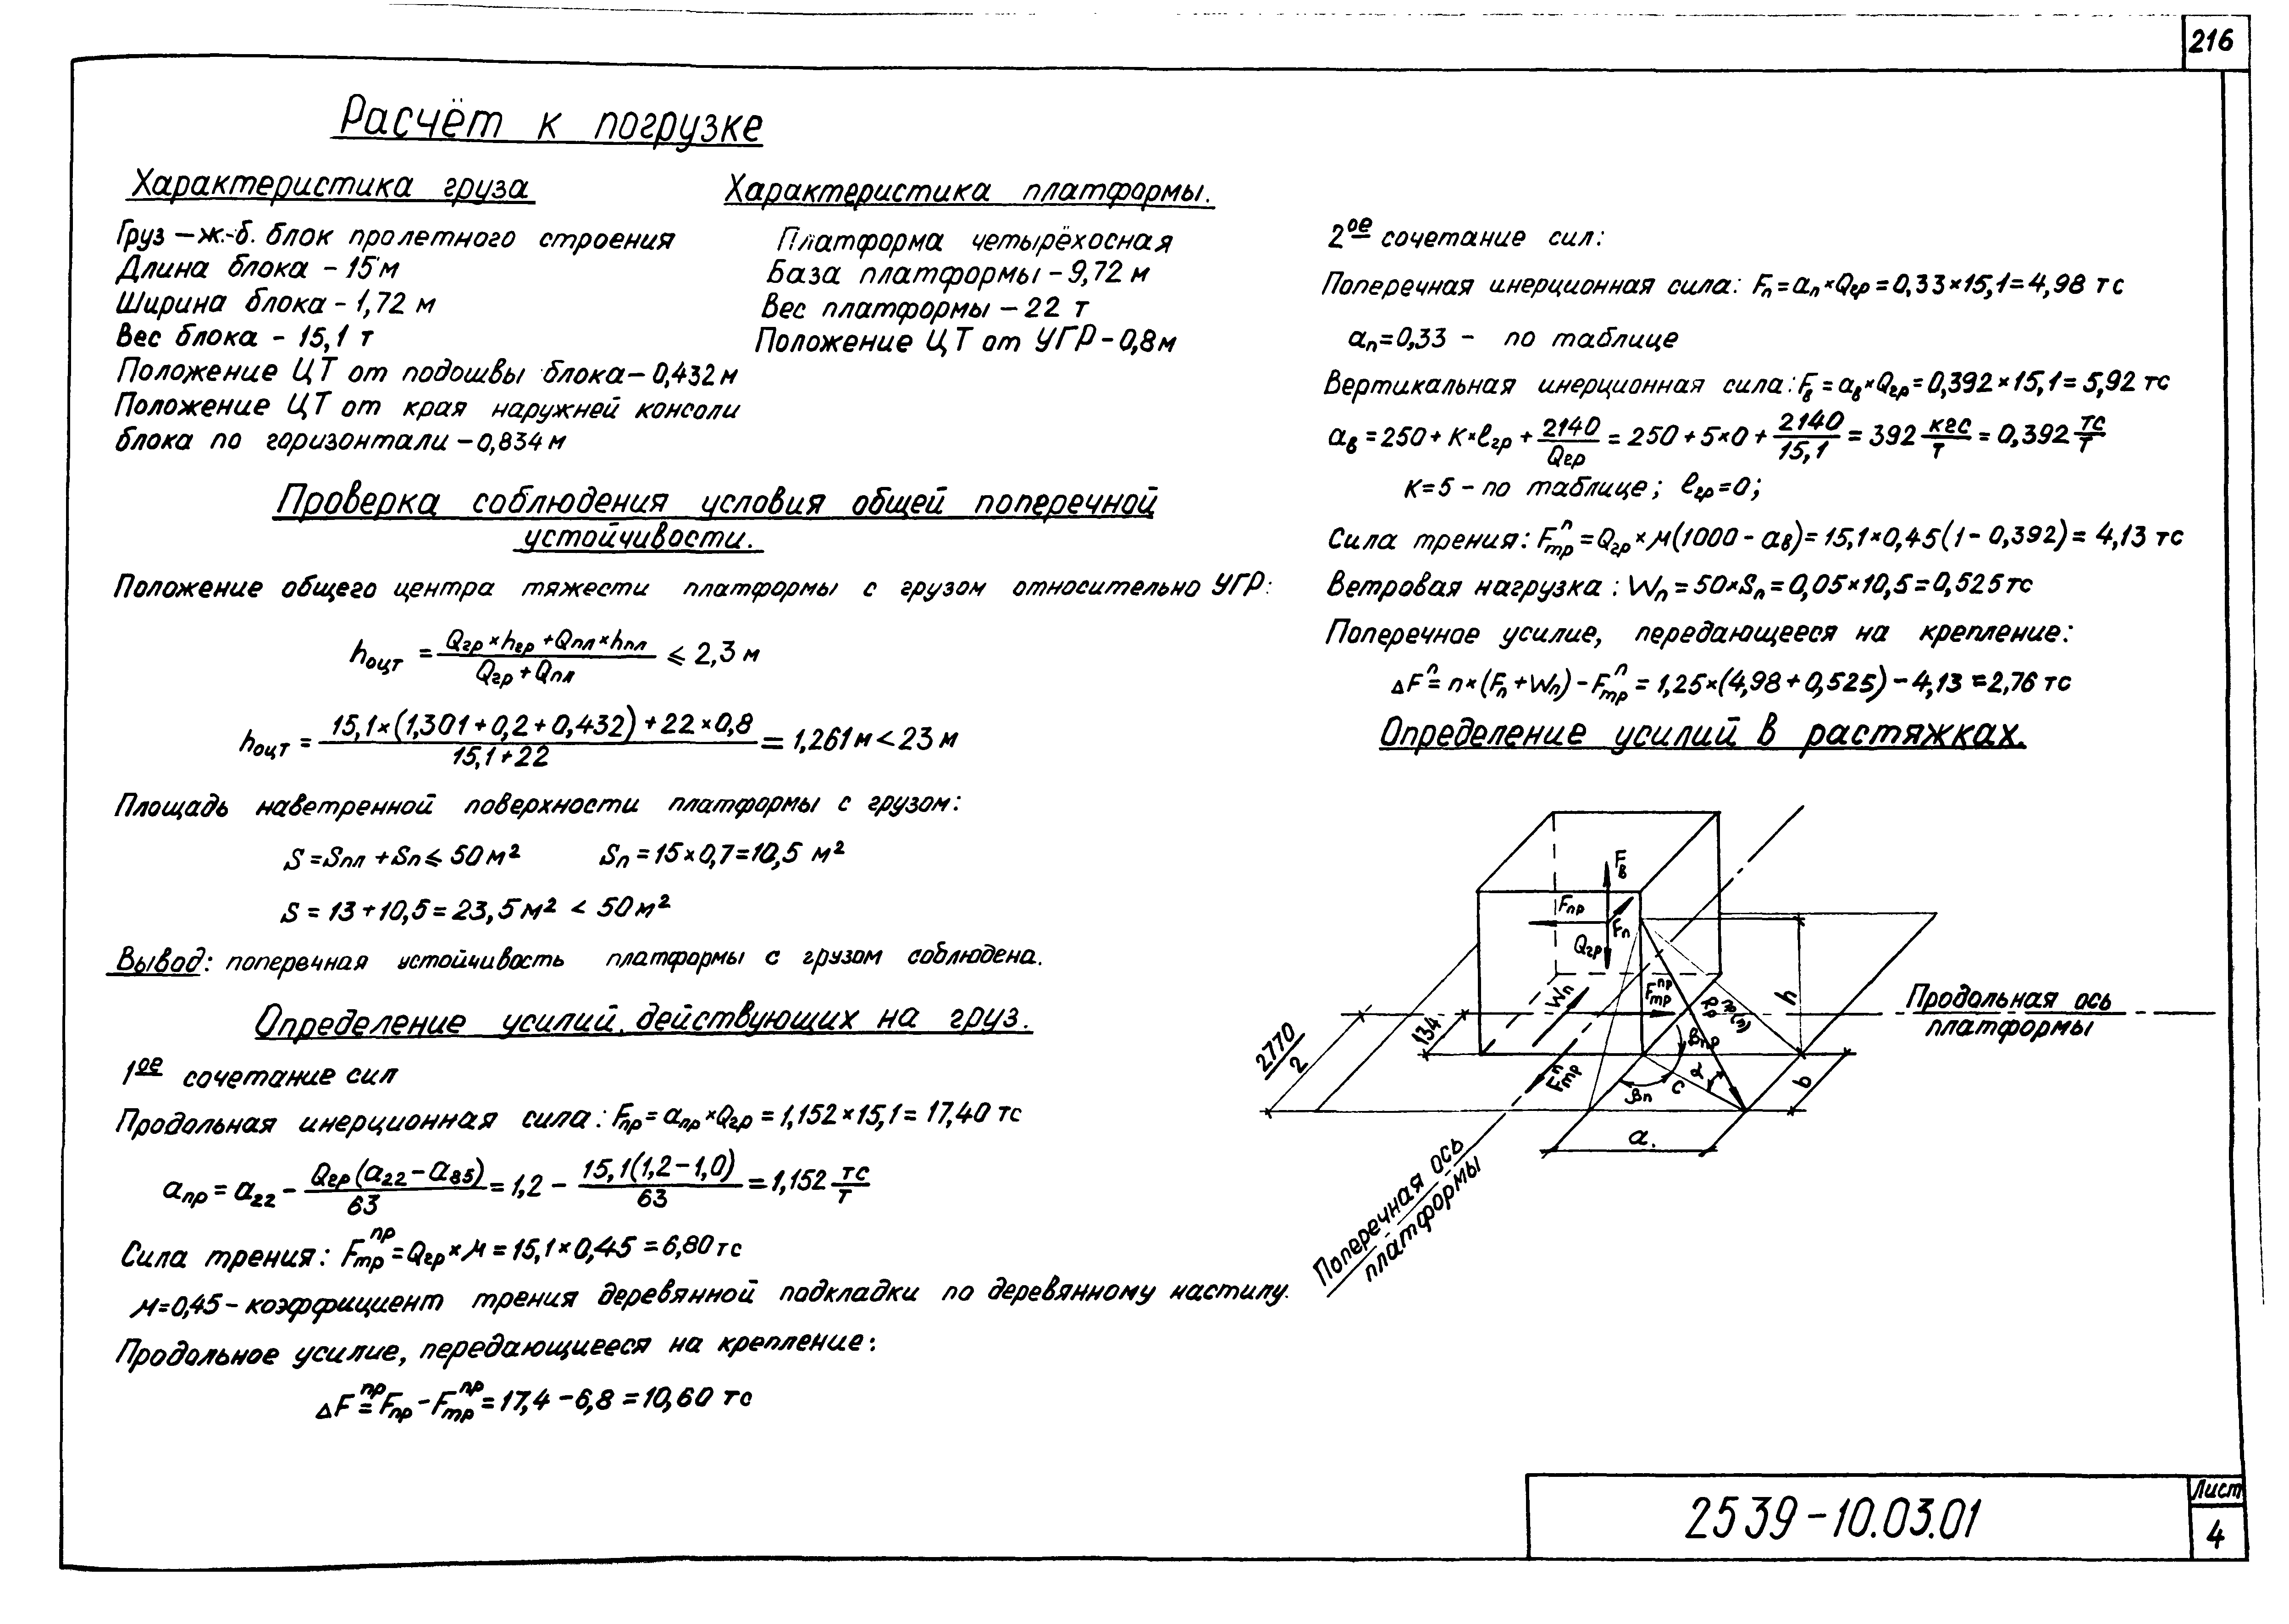 216
Расчёт к погрузке
Характеристика груза
Груз – ж.-б. блок пролетного строения
Длина блока – 15 м
Ширина блока – 1,72 м
Вес блока – 15,1 т
Положение ЦТ от подошвы блока – 0,432 м
Положение ЦТ от края наружней консоли
блока по горизонтали – 0,834 м
Характеристика платформы.
Платформа четырёхосная
База платформы – 9,72 м
Вес платформы – 22 т
Положение ЦТ от УГР – 0,8 м
Проверка соблюдения условия общей поперечной
устойчивости.
Положение общего центра тяжести платформы с грузом относительно УГР:
hоцт = (Qгр × hгр + Qпл × hпл) / (Qгр + Qпл) ⩽ 2,3 м
hоцт = (15,1 × (1,301 + 0,2 + 0,432) + 22 × 0,8) / (15,1 + 22) = 1,261 м < 23 м
Площадь наветренной поверхности платформы с грузом:
S = Sпл + Sп ⩽ 50 м² Sп = 15 × 0,7 = 10,5 м²
S = 13 + 10,5 = 23,5 м² < 50 м²
Вывод: поперечная устойчивость платформы с грузом соблюдена.
Определение усилий, действующих на груз.
1ое сочетание сил
Продольная инерционная сила: Fпр = aпр × Qгр = 1,152 × 15,1 = 17,40 тс
aпр = a22 – Qгр (a22 – a85) / 63 = 1,2 – 15,1 (1,2 – 1,0) / 63 = 1,152 тс/т
Сила трения: Fтр^пр = Qгр × μ = 15,1 × 0,45 = 6,80 тс
μ = 0,45 – коэффициент трения деревянной подкладки по деревянному настилу.
Продольное усилие, передающиееся на крепление:
ΔF^пр = Fпр – Fтр^пр = 17,4 – 6,8 = 10,60 тс
2ое сочетание сил:
Поперечная инерционная сила: Fп = aп × Qгр = 0,33 × 15,1 = 4,98 тс
aп = 0,33 – по таблице
Вертикальная инерционная сила: Fв = aв × Qгр = 0,392 × 15,1 = 5,92 тс
aв = 250 + К × ℓгр + 2140/Qгр = 250 + 5 × 0 + 2140/15,1 = 392 кгс/т = 0,392 тс/т
К = 5 – по таблице; ℓгр = 0;
Сила трения: Fтр^п = Qгр × μ (1000 – aв) = 15,1 × 0,45 (1 – 0,392) = 4,13 тс
Ветровая нагрузка: Wп = 50 × Sп = 0,05 × 10,5 = 0,525 тс
Поперечное усилие, передающееся на крепление:
ΔF^п = n × (Fп + Wп) – Fтр^п = 1,25 × (4,98 + 0,525) – 4,13 = 2,76 тс
Определение усилий в растяжках.
Fв
Fпр
Fп
Qгр
Wп
Fтр^пр
h
Продольная ось
платформы
2770/2
134
βпр
Fтр^п
α
βп
c
b
a.
Поперечная ось
платформы
2539-10.03.01
Лист
4